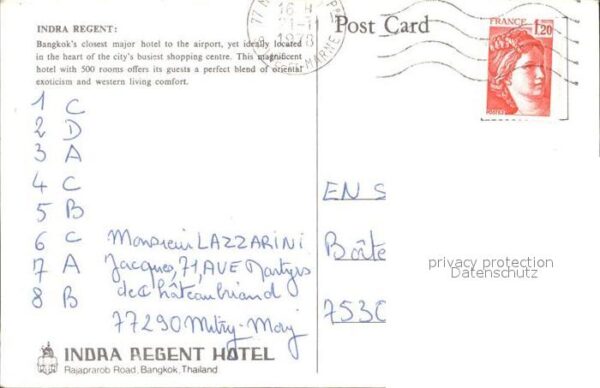 INDRA REGENT:
Bangkok's closest major hotel to the airport, yet ideally located
in the heart of the city's busiest shopping centre. This magnificent
hotel with 500 rooms offers its guests a perfect blend of oriental
exoticism and western living comfort.
Post Card
16 H
21-11
1978
FRANCE
1,20
1 C
2 D
3 A
4 C
5 B
6 C
7 A
8 B
Monsieur LAZZARINI
Jacques, 71, AVE Martyrs
de Châteaubriand
77290 Mitry-Mory
EN S
Boîte
7530
privacy protection
Datenschutz
INDRA REGENT HOTEL
Rajaprarob Road, Bangkok, Thailand